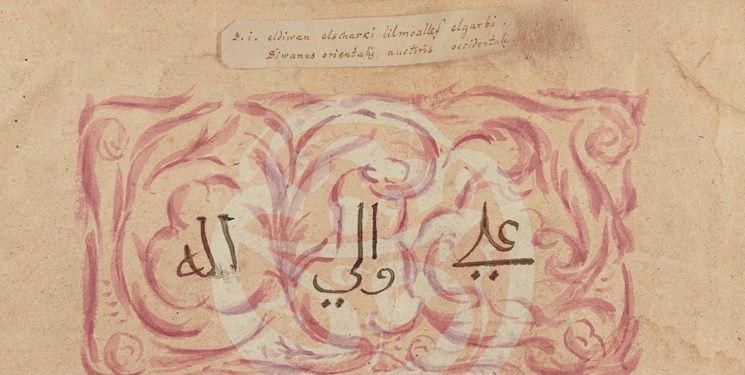 D. i. eldiwan elscharki lilmoallef elgarbi.
Diwanus orientalis auctoris occidentalis
علي والي لله